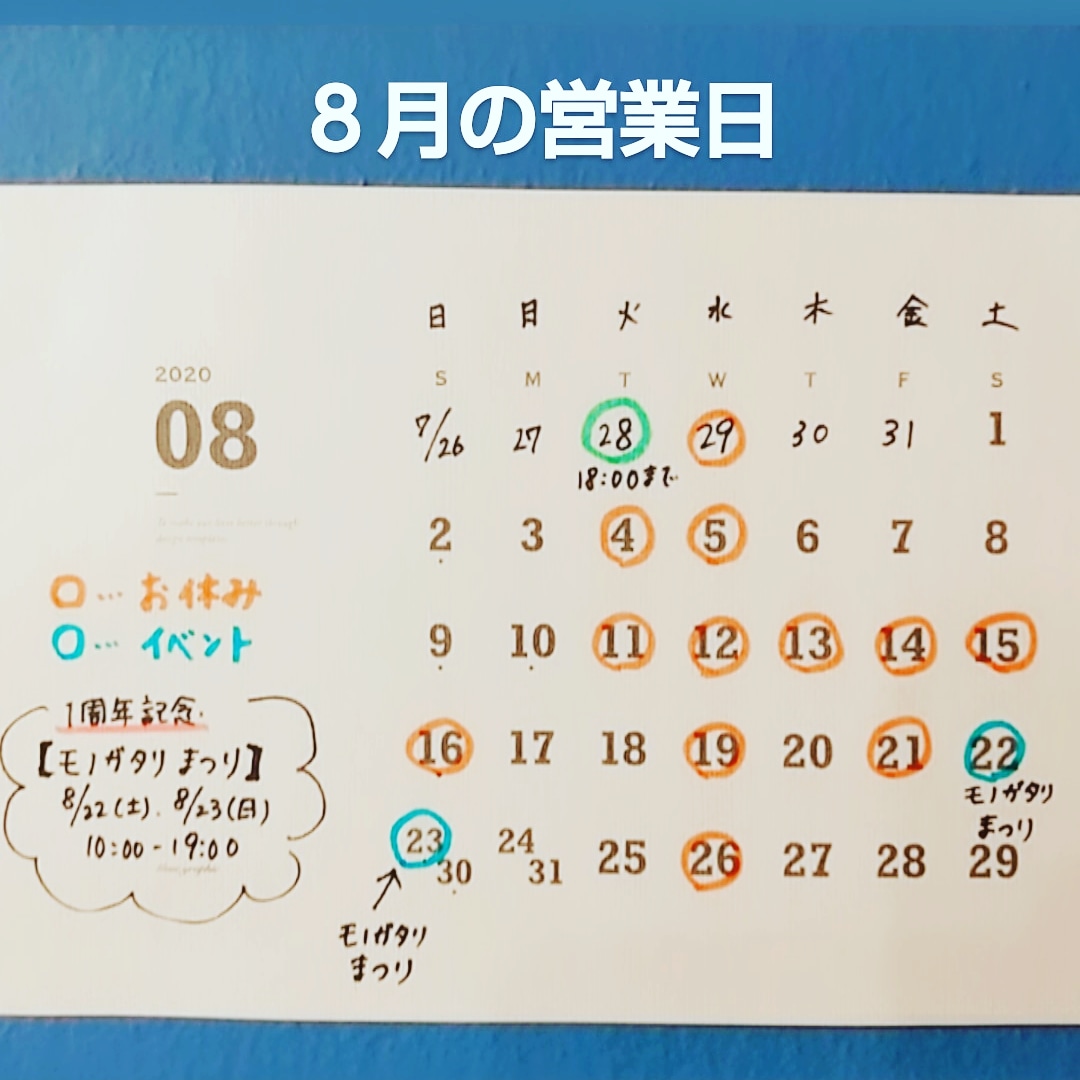 ８月の営業日
日 月 火 水 木 金 土
2020
08
S M T W T F S
7/26 27 28 29 30 31 1
18:00まで
2 3 4 5 6 7 8
○… お休み
○… イベント
9 10 11 12 13 14 15
1周年記念.
【モノガタリ まつり】
8/22(土). 8/23(日)
10:00-19:00
16 17 18 19 20 21 22
モノガタリ
まつり
23 24 25 26 27 28 29
30 31
モノガタリ
まつり